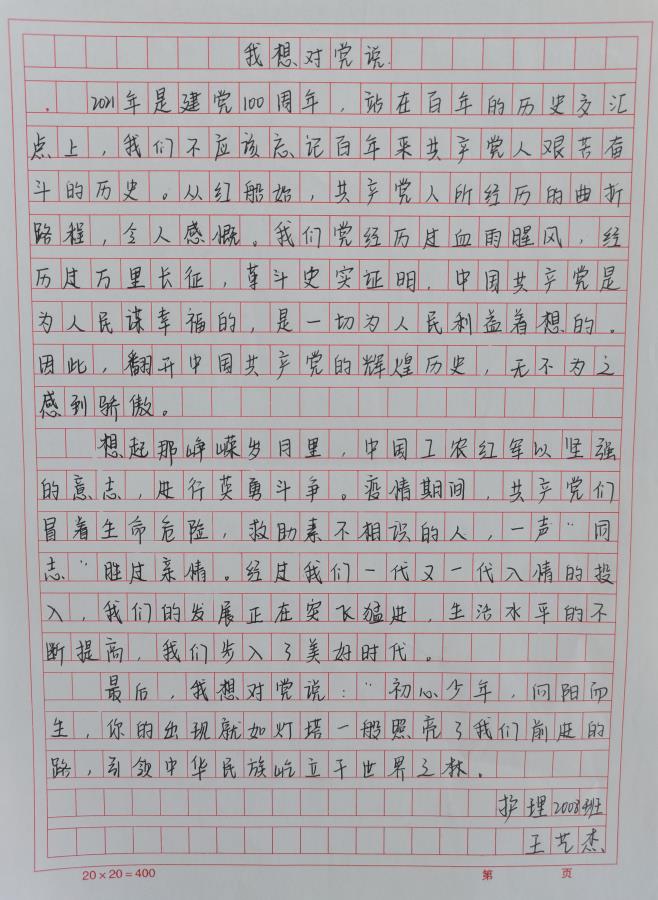 我想对党说
2021年是建党100周年，站在百年的历史交汇
点上，我们不应该忘记百年来共产党人艰苦奋
斗的历史。从红船始，共产党人所经历的曲折
路程，令人感慨。我们党经历过血雨腥风，经
历过万里长征，奋斗史实证明，中国共产党是
为人民谋幸福的，是一切为人民利益着想的。
因此，翻开中国共产党的辉煌历史，无不为之
感到骄傲。
想起那峥嵘岁月里，中国工农红军以坚强
的意志，进行英勇斗争。疫情期间，共产党们
冒着生命危险，救助素不相识的人，一声“同
志”胜过亲情。经过我们一代又一代人情的投
入，我们的发展正在突飞猛进，生活水平的不
断提高，我们步入了美好时代。
最后，我想对党说：“初心少年，向阳而
生，你的出现就如灯塔一般照亮了我们前进的
路，引领中华民族屹立于世界之林。
护理2008班
王艺杰
20×20=400 第 页